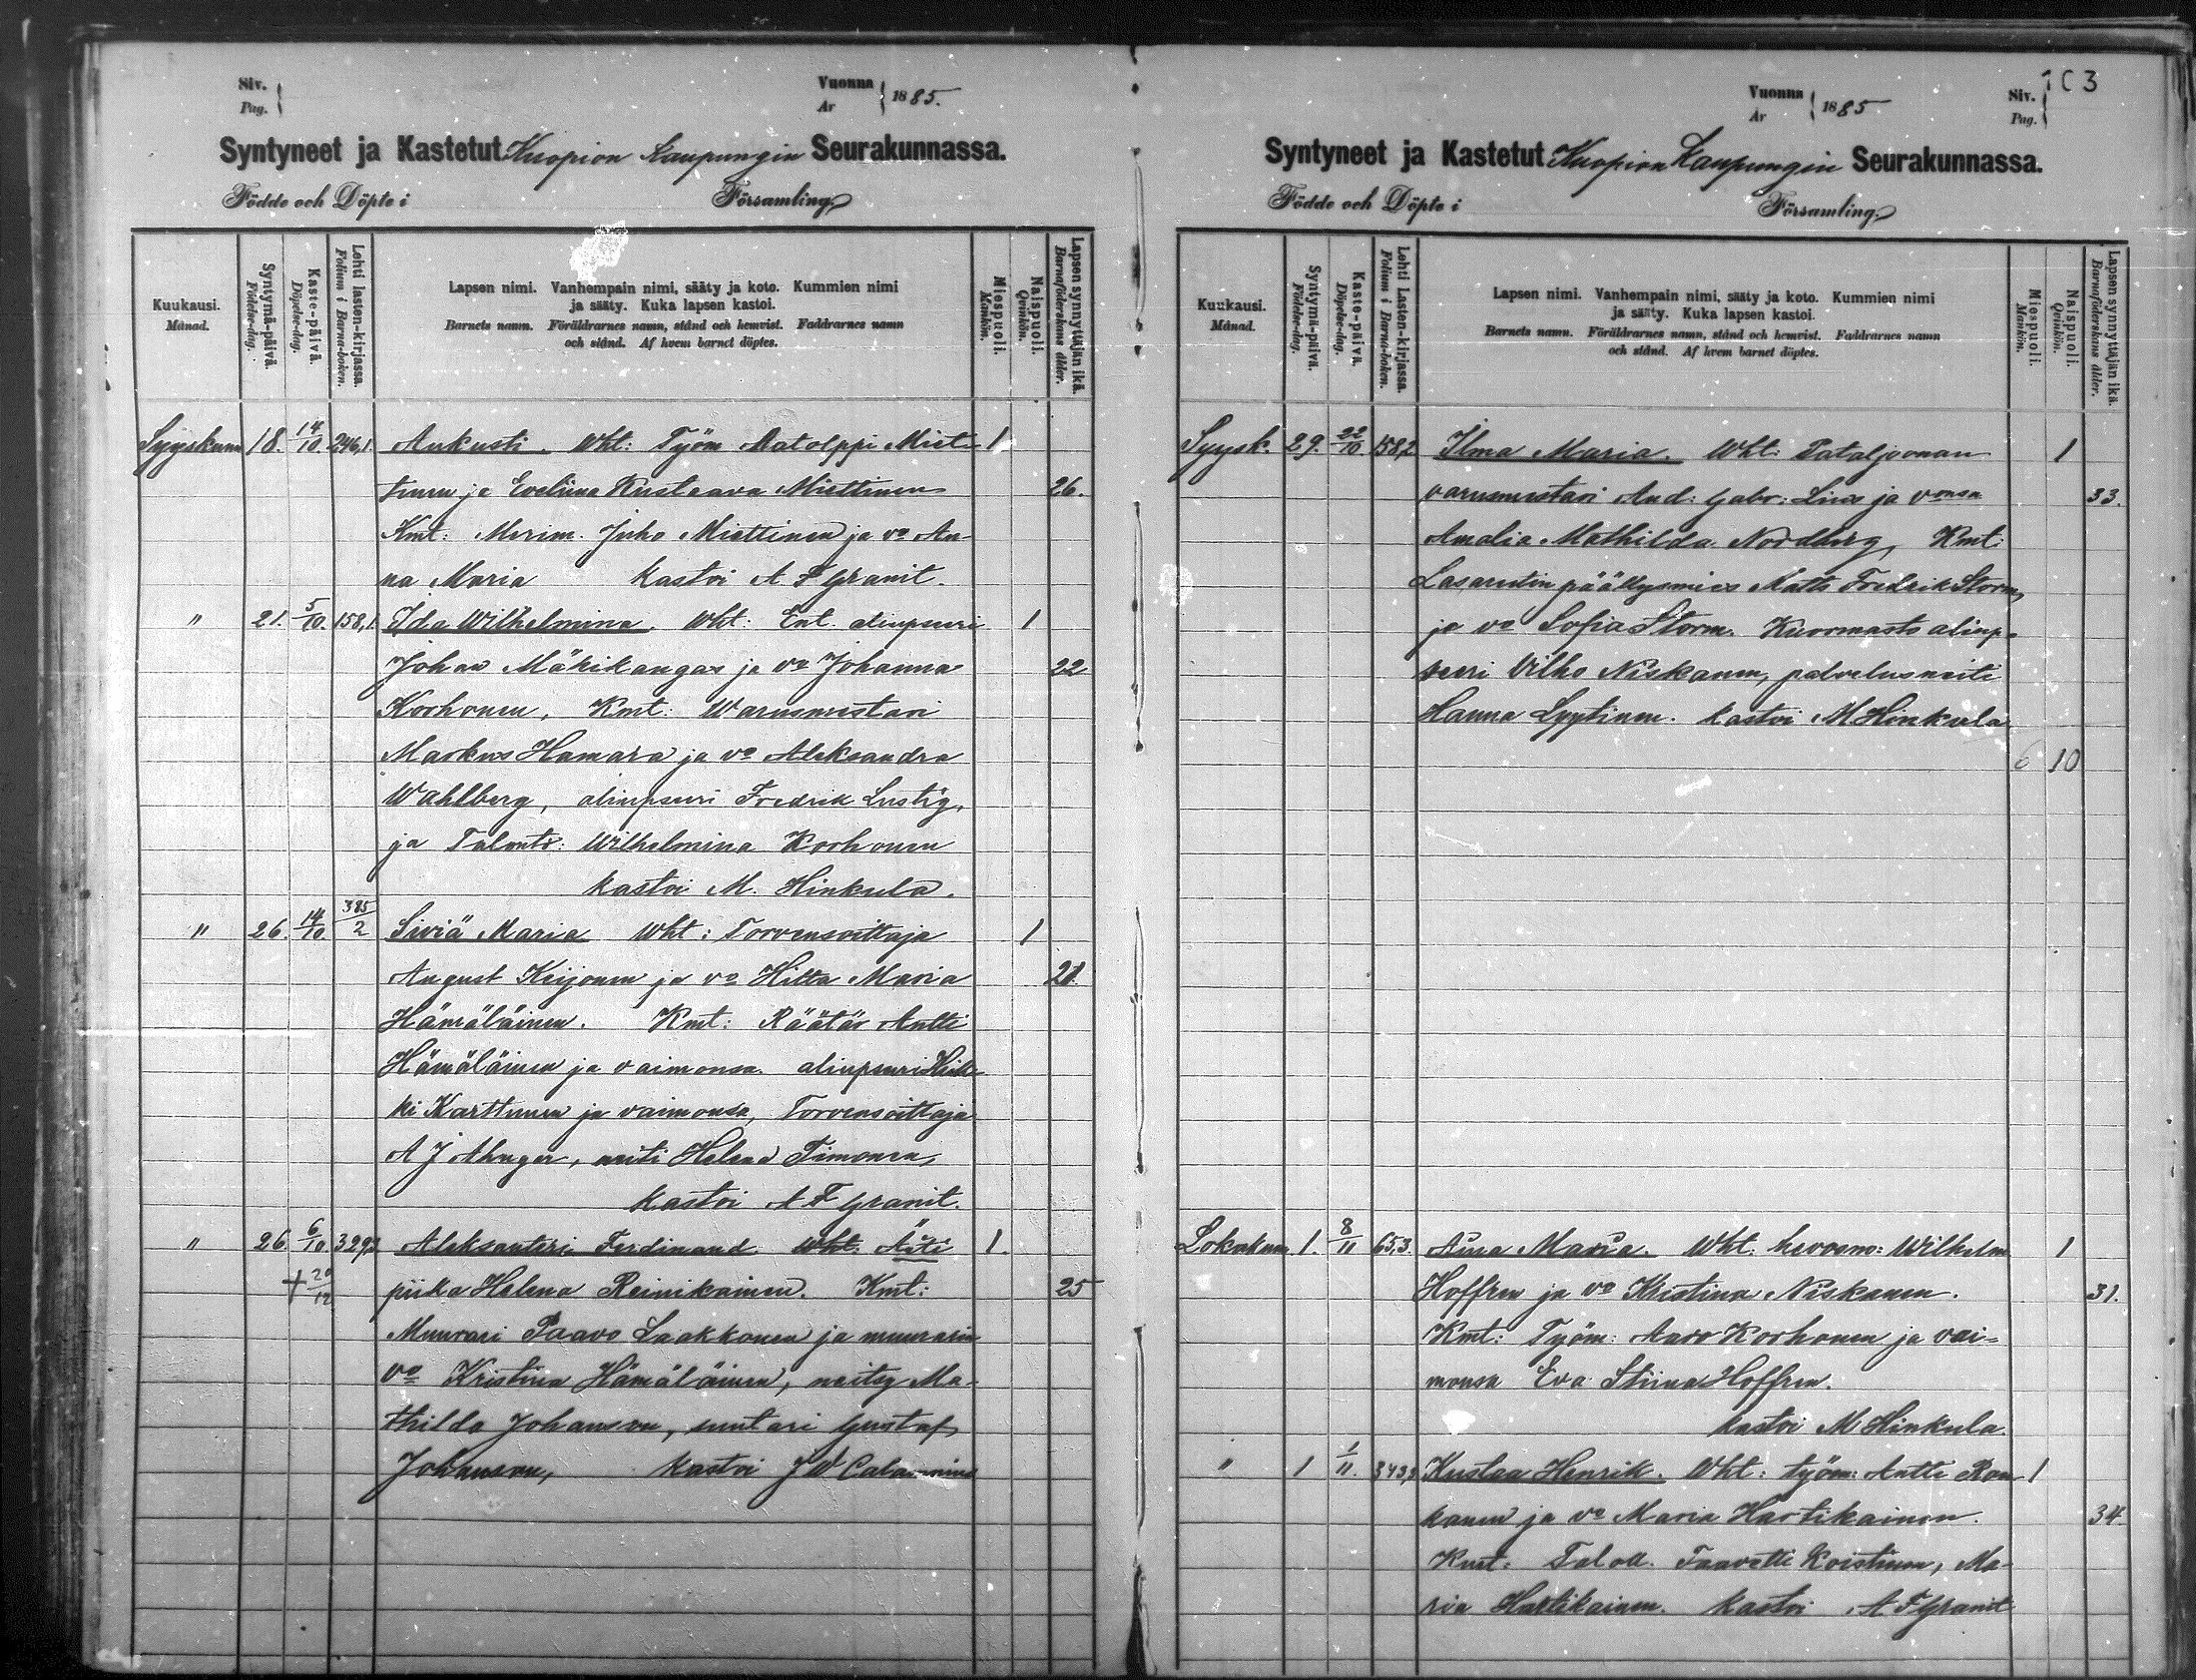 Siv.
Pag.
Vuonna
År
1885.
Syntyneet ja Kastetut Kuopion Kaupungin Seurakunnassa.
Födde och Döpte i Församling.
Kuukausi. Månad.
Syntymä-päivä. Födelse-dag.
Kaste-päivä. Döpelse-dag.
Lehti lasten-kirjassa. Folium i Barna-boken.
Lapsen nimi. Vanhempain nimi, sääty ja koto. Kummien nimi
ja sääty. Kuka lapsen kastoi.
Barnets namn. Föräldrarnes namn, stånd och hemvist. Faddrarnes namn
och stånd. Af hvem barnet döptes.
Miespuoli. Mankön.
Naispuoli. Qvinkön.
Lapsen synnyttäjän ikä. Barnaföderskans ålder.
Syyskuu 18. 14/10. 246,1. Aukusti. Wht: Työm Aatolppi Mietti- 1
tinen ja Eveliina Kustaava Miettinen 26.
Kmt: Merim. Juho Miettinen ja vo An-
na Maria kastoi A F Granit.
" 21. 5/10. 158,1. Ida Wilhelmina. Wht: Ent. aliupseeri 1
Johan Mäkikangas ja vo Johanna 22
Korhonen, Kmt: Warusmestari
Markus Hamara ja vo Aleksandra
Wahlberg, aliupseeri Fredrik Lustig,
ja Talont: Wilhelmina Korhonen
kastoi M. Hinkula.
" 26. 14/10. 385/2 Siviä Maria Wht: Torvensoittaja 1
August Keijonen ja vo Hilta Maria 21.
Hämäläinen. Kmt: Räätäri Antti
Hämäläinen ja vaimonsa. aliupseeri Heik-
ki Karttunen ja vaimonsa, Torvensoittaja
A J Ahnger, neiti Helena Timonen,
kastoi A F Granit.
" 26. 6/10. 329,3 Aleksanteri Ferdinand. Wht. Äiti 1.
+ 20/12 piika Helena Reinikainen. Kmt: 25
Muurari Paavo Laakkonen ja muurarin
vo Kristina Hämäläinen, neitsy Ma-
thilda Johanson, suutari Gustaf
Johanson, kastoi J W Calamnius
103
Vuonna
År
1885
Siv.
Pag.
Syntyneet ja Kastetut Kuopion Kaupungin Seurakunnassa.
Födde och Döpte i Församling.
Kuukausi. Månad.
Syntymä-päivä. Födelse-dag.
Kaste-päivä. Döpelse-dag.
Lehti Lasten-kirjassa. Folium i Barna-boken.
Lapsen nimi. Vanhempain nimi, sääty ja koto. Kummien nimi
ja sääty. Kuka lapsen kastoi.
Barnets namn. Föräldrarnes namn, stånd och hemvist. Faddrarnes namn
och stånd. Af hvem barnet döptes.
Miespuoli. Mankön.
Naispuoli. Qvinkön.
Lapsen synnyttäjän ikä. Barnaföderskans ålder.
Syysk. 29. 22/10. 158,2 Ilma Maria. Wht: Pataljoonan 1
varusmestari And: Gabr: ja vonsa 33.
Amalia Mathilda Nordberg, Kmt:
Lasaretin päällysmies Matts Fredrik Storm,
ja vo Sofia Storm. Kuormasto aliup-
seeri Vilho Niskanen, palvelusneiti
Hanna Lyytinen. kastoi M Hinkula
6 10
Lokakuu 1. 8/11 65,3. Maria. Wht. hevosm: Wilhelm 1
Hoffren ja vo Kristina Niskanen. 31.
Kmt: Työm: Aaro Korhonen ja vai-
monsa Eva Stiina Hoffren.
kastoi M Hinkula.
" 1 1/11. 343,3 Kustaa Henrik. Wht: työm: Antti 1
kanen ja vo Maria Hartikainen. 34.
Kmt: Taloll. Taavetti Koistinen, Ma-
ria Hartikainen. kastoi A F Granit